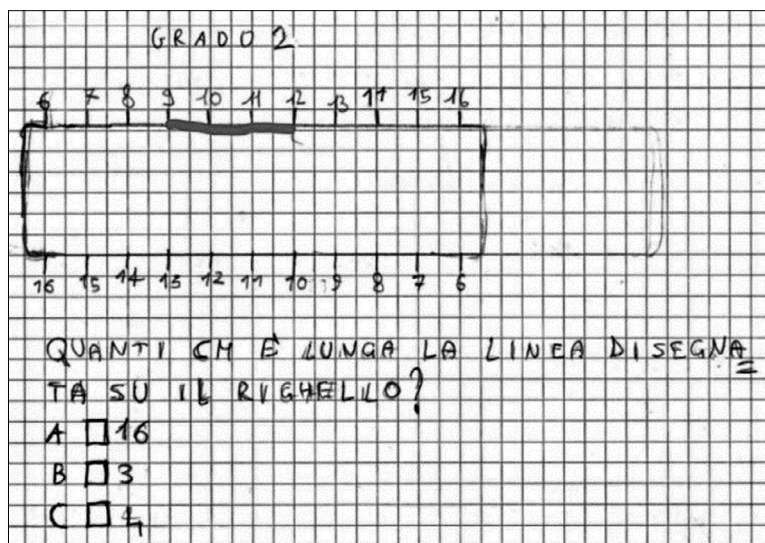 GRADO 2
6 7 8 9 10 11 12 13 14 15 16
16 15 14 13 12 11 10 9 8 7 6
QUANTI CM È LUNGA LA LINEA DISEGNA=
TA SU IL RIGHELLO?
A □ 16
B □ 3
C □ 4